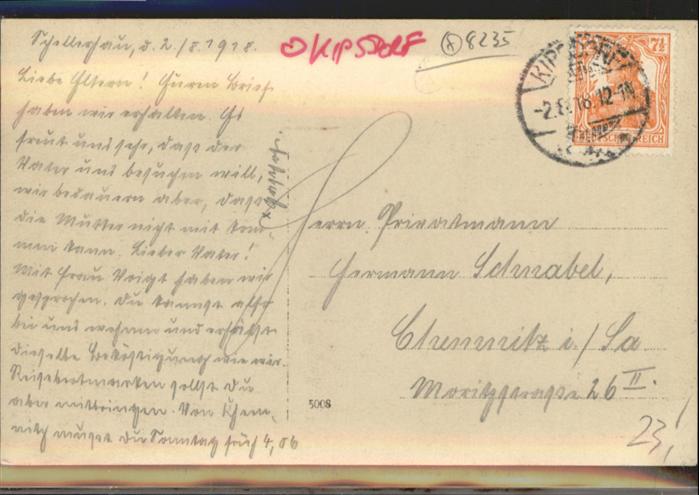 Schellerhau, d. 2./8. 1918.
Liebe Eltern! Euren Brief
haben wir erhalten. Es
freut uns sehr, dass der
Vater uns besuchen will,
wir bedauern aber, dass
die Mutter nicht mit kom-
men kann. Lieber Vater!
Mit Frau Voigt haben wir
gesprochen. Du kannst also
bei uns wohnen und erhältst
dieselbe Beköstigung wie wir.
Reisebrotmarken sollst Du
aber mitbringen. Von Chem-
nitz musst Du Sonntag früh 4,06
KIPSDORF
8235
KIPSDORF
-2.8.18.12-1N
7½
DEUTSCHES REICH
Herrn Privatmann
Hermann Schnabel,
Chemnitz i./Sa
Moritzstrasse 26 II.
5008
23,